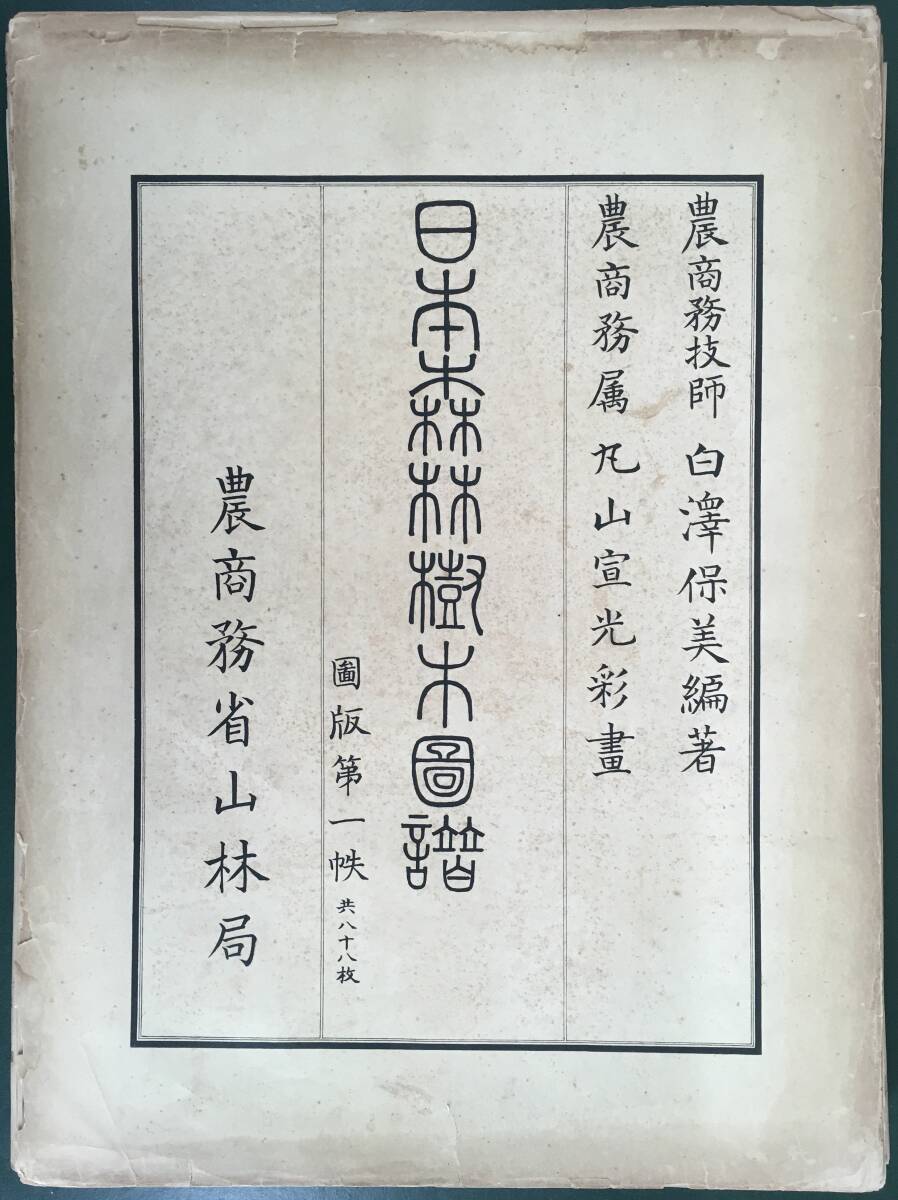 農商務技師 白澤保美編著
農商務属 丸山宣光彩畫
日本森林樹木圖譜
圖版第一帙 共八十八枚
農商務省山林局